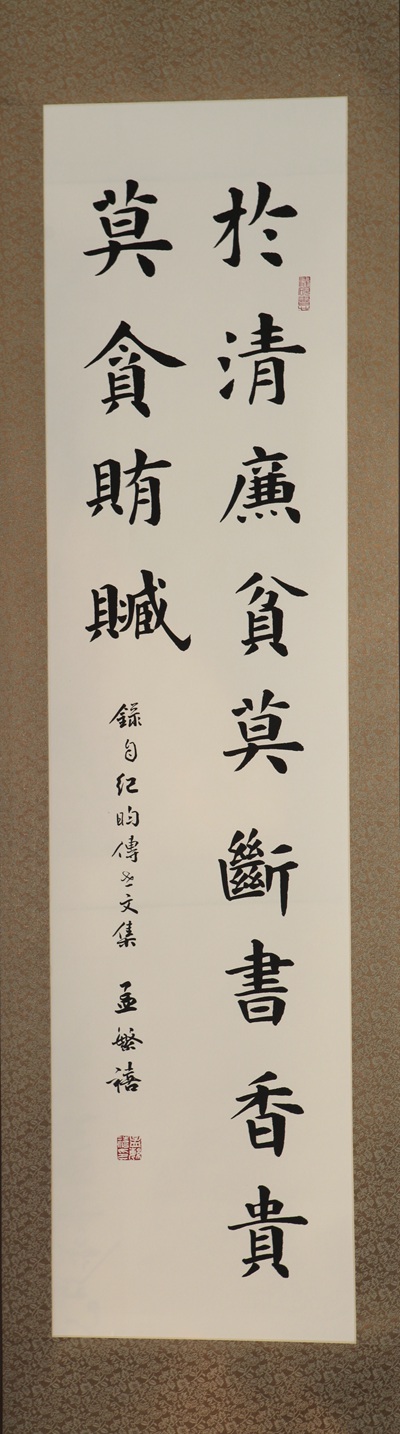 於清廉貧莫斷書香貴
莫貪賄贓
錄自紀昀傳世文集 孟繁禧